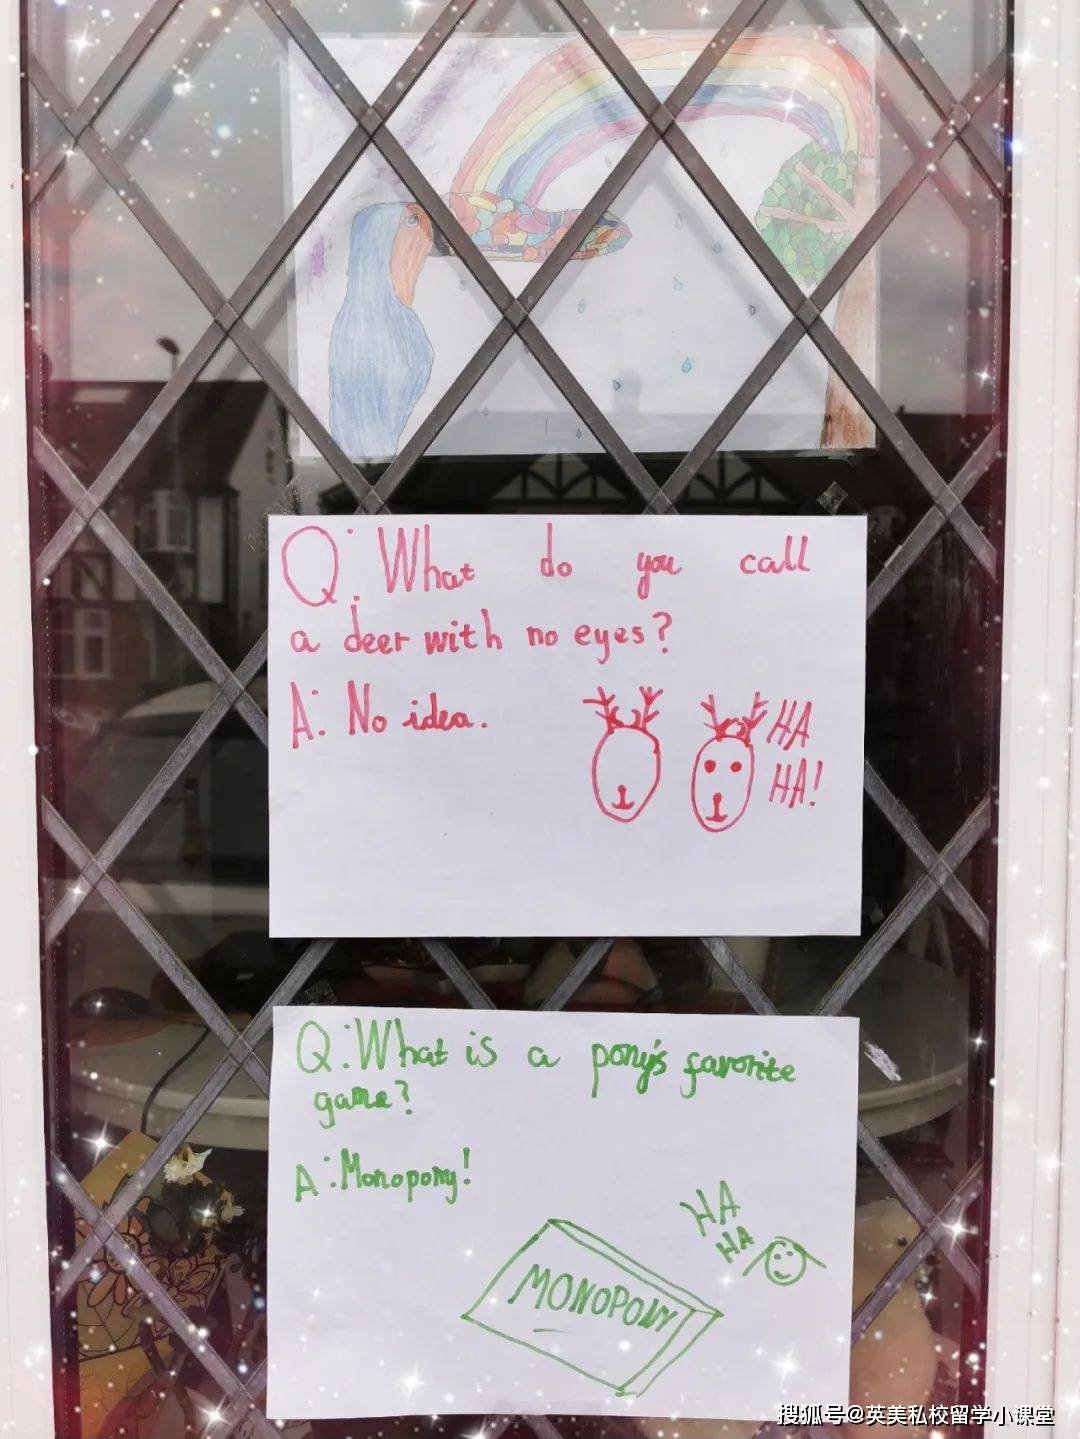 Q: What do you call
a deer with no eyes?
A: No idea.
HA
HA!
Q: What is a pony's favorite
game?
A: Monopony!
HA
HA
MONOPONY
搜狐号@英美私校留学小课堂